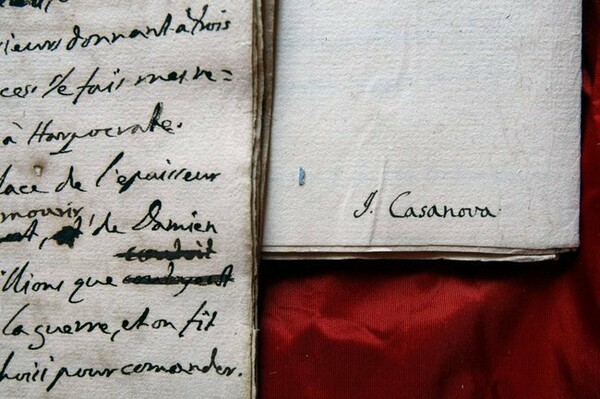 rieurs donnant à trois
ces: Je fais mes re=
à Harpocrate.
lace de l'epaisseur
mourir
et de Damien
illions que
la guerre, et on fit
hoisi pour comander.
J. Casanova